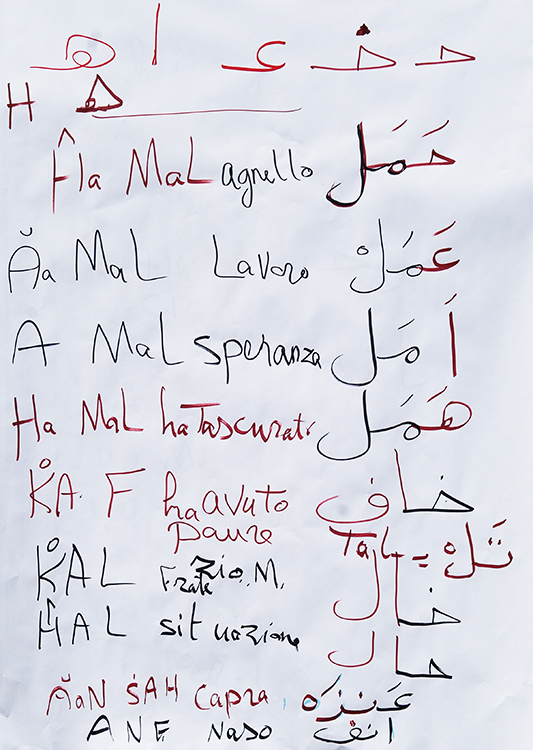 ح خ ع ا ه
H ه
Ĥa MaL agnello حَمَل
Ăa MaL Lavoro عَمَلْ
A MaL speranza اَمَل
Ha MaL ha Tascurato هَمَل
K̊A. F ha avuto paura خاف
TaL = تَلْ
K̊AL zio. M. خال
ĤAL situazione حال
ĂaN ŚAH capra عَنزه
ANF Naso انف